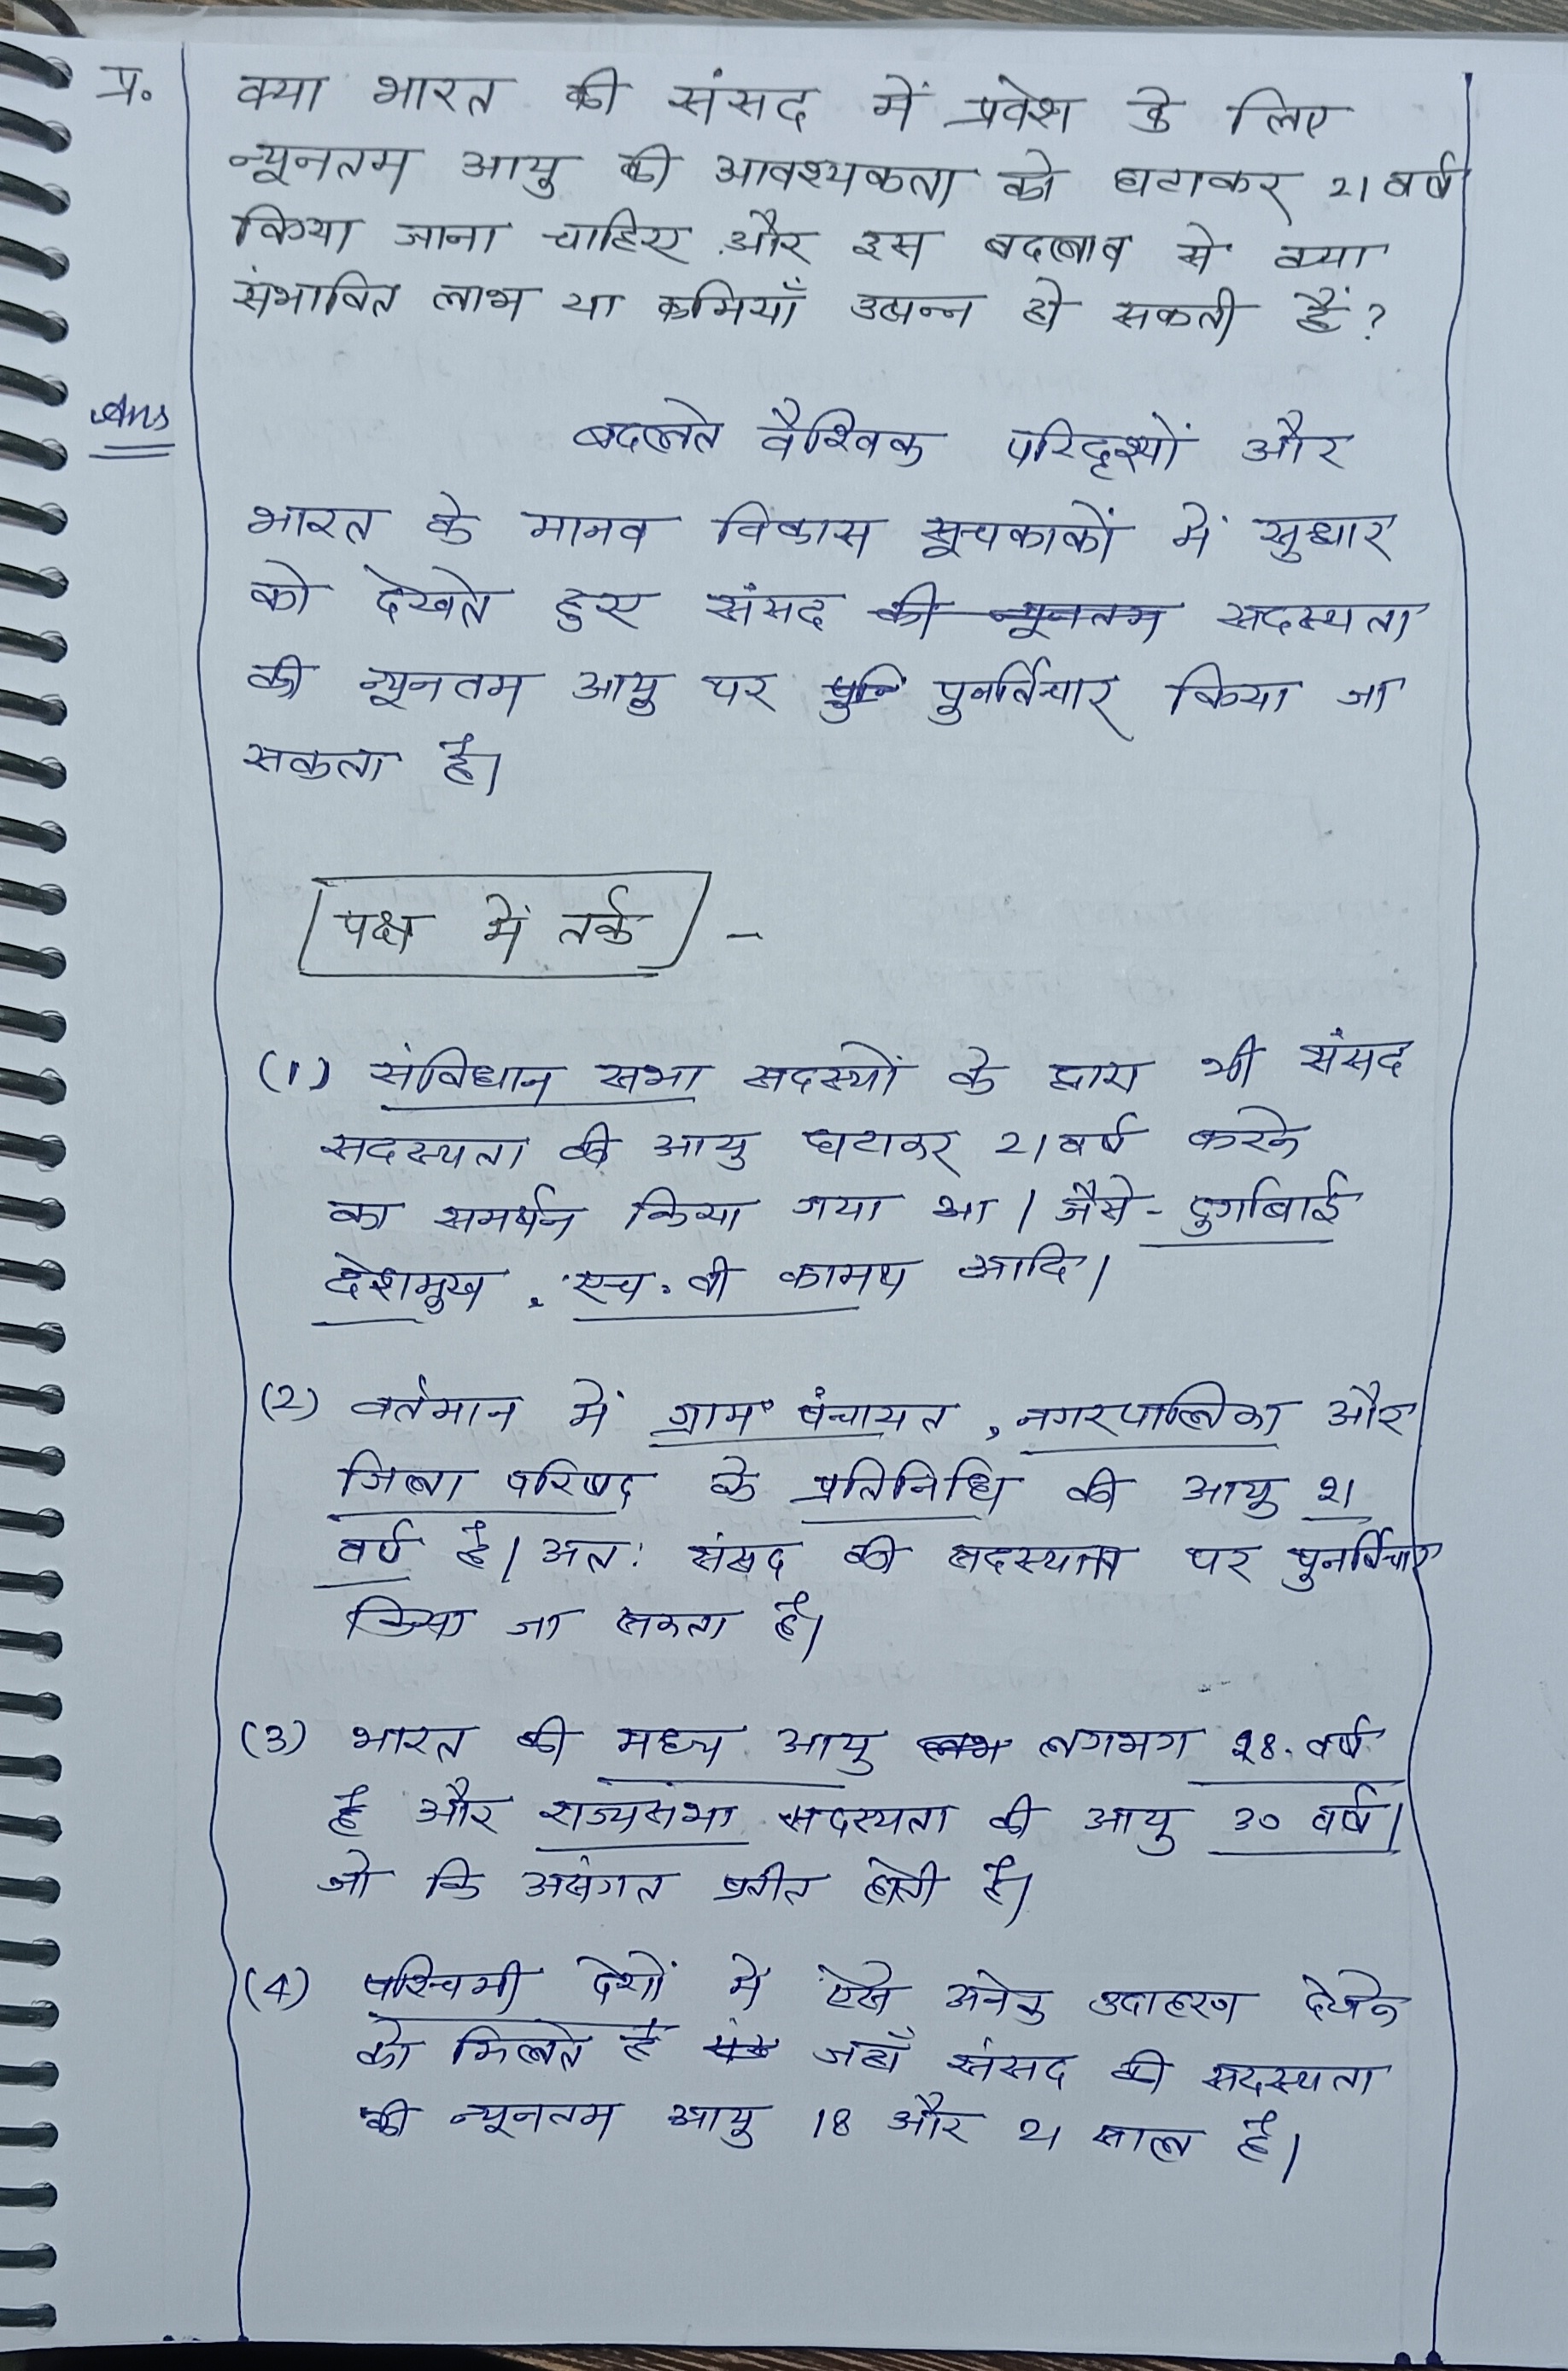 प्र. क्या भारत की संसद में प्रवेश के लिए
न्यूनतम आयु की आवश्यकता को घटाकर 21 वर्ष
किया जाना चाहिए और इस बदलाव से क्या
संभावित लाभ या कमियाँ उत्पन्न हो सकती हैं?
Ans बदलते वैश्विक परिदृश्यों और
भारत के मानव विकास सूचकाकों में सुधार
को देखते हुए संसद की न्यूनतम सदस्यता
की न्यूनतम आयु पर पुनर्विचार किया जा
सकता है।
पक्ष में तर्क -
(1) संविधान सभा सदस्यों के द्वारा भी संसद
सदस्यता की आयु घटाकर 21 वर्ष करने
का समर्थन किया गया था। जैसे - दुर्गाबाई
देशमुख, एच. वी कामथ आदि।
(2) वर्तमान में ग्राम पंचायत, नगरपालिका और
जिला परिषद के प्रतिनिधि की आयु 21
वर्ष है। अतः संसद की सदस्यता पर पुनर्विचार
किया जा सकता है।
(3) भारत की मध्य आयु लगभग 28 वर्ष
है और राज्यसभा सदस्यता की आयु 30 वर्ष।
जो कि असंगत प्रतीत होती है।
(4) पश्चिमी देशों में ऐसे अनेक उदाहरण देखने
को मिलते है जहाँ संसद की सदस्यता
की न्यूनतम आयु 18 और 21 साल है।